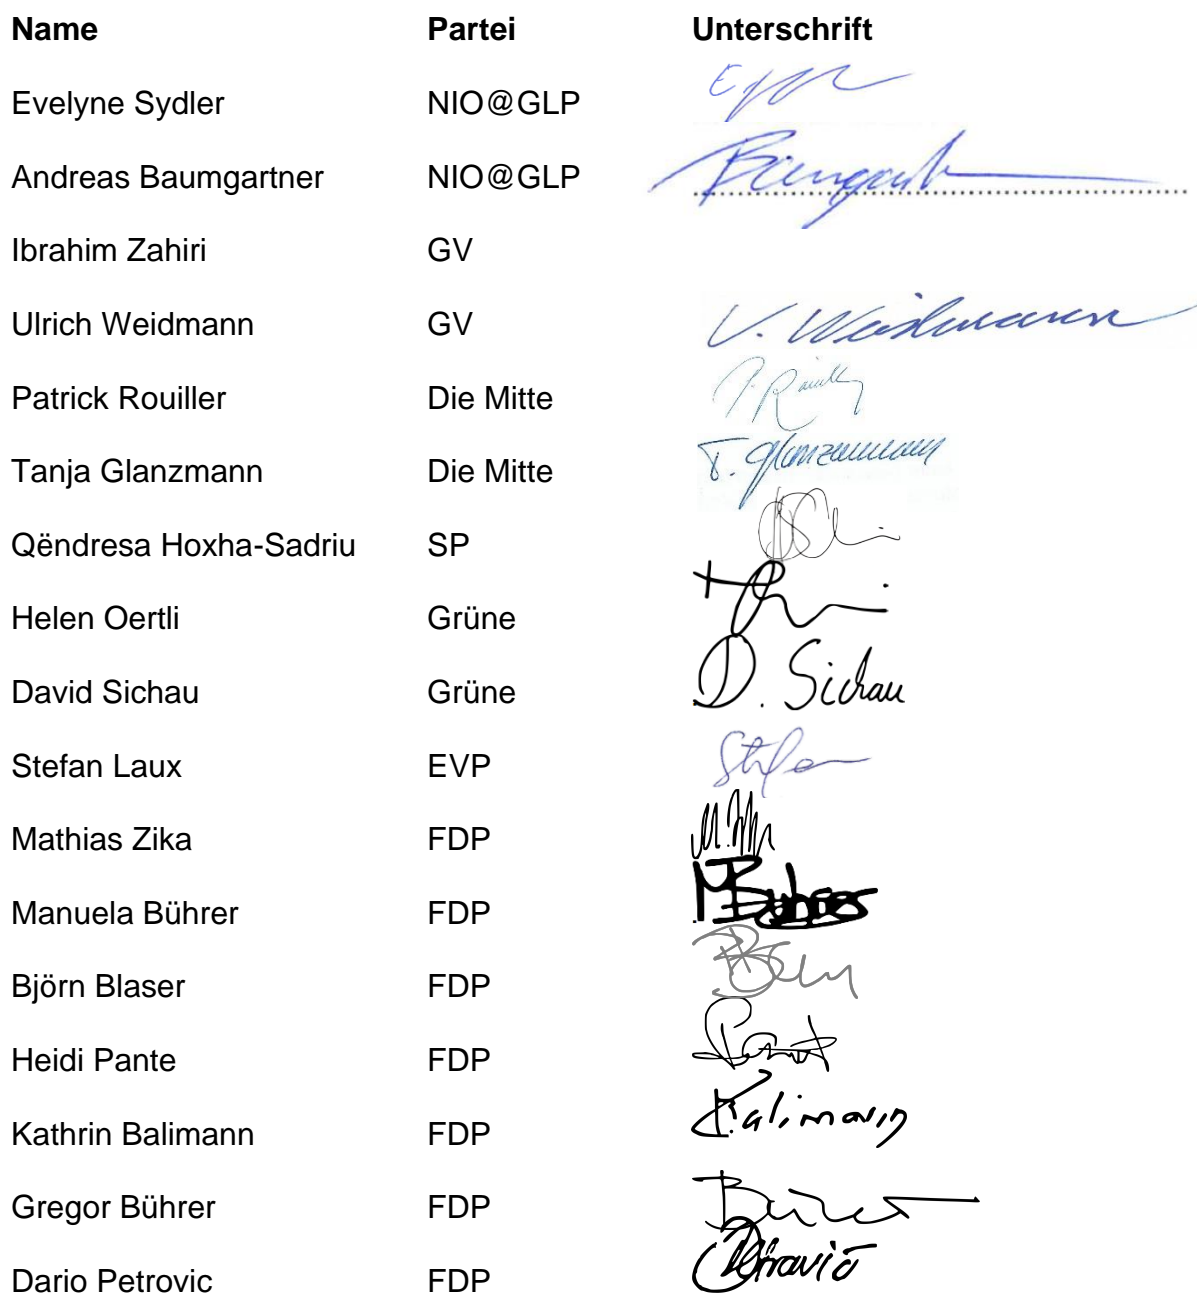 Name Partei Unterschrift
Evelyne Sydler NIO@GLP
Andreas Baumgartner NIO@GLP
Ibrahim Zahiri GV
Ulrich Weidmann GV U. Weidmann
Patrick Rouiller Die Mitte
Tanja Glanzmann Die Mitte T. Glanzmann
Qëndresa Hoxha-Sadriu SP
Helen Oertli Grüne
David Sichau Grüne D. Sichau
Stefan Laux EVP Stefan
Mathias Zika FDP
Manuela Bührer FDP
Björn Blaser FDP
Heidi Pante FDP
Kathrin Balimann FDP
Gregor Bührer FDP
Dario Petrovic FDP